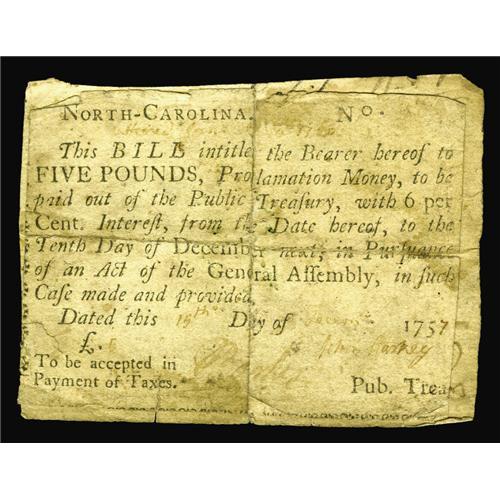 NORTH-CAROLINA. No.
This BILL intitle the Bearer hereof to
FIVE POUNDS, Proclamation Money, to be
paid out of the Public Treasury, with 6 per
Cent. Interest, from the Date hereof, to the
Tenth Day of December next; in Pursuance
of an Act of the General Assembly, in such
Case made and provided.
Dated this 15th Day of 1757
£.
To be accepted in
Payment of Taxes.
Pub. Trea